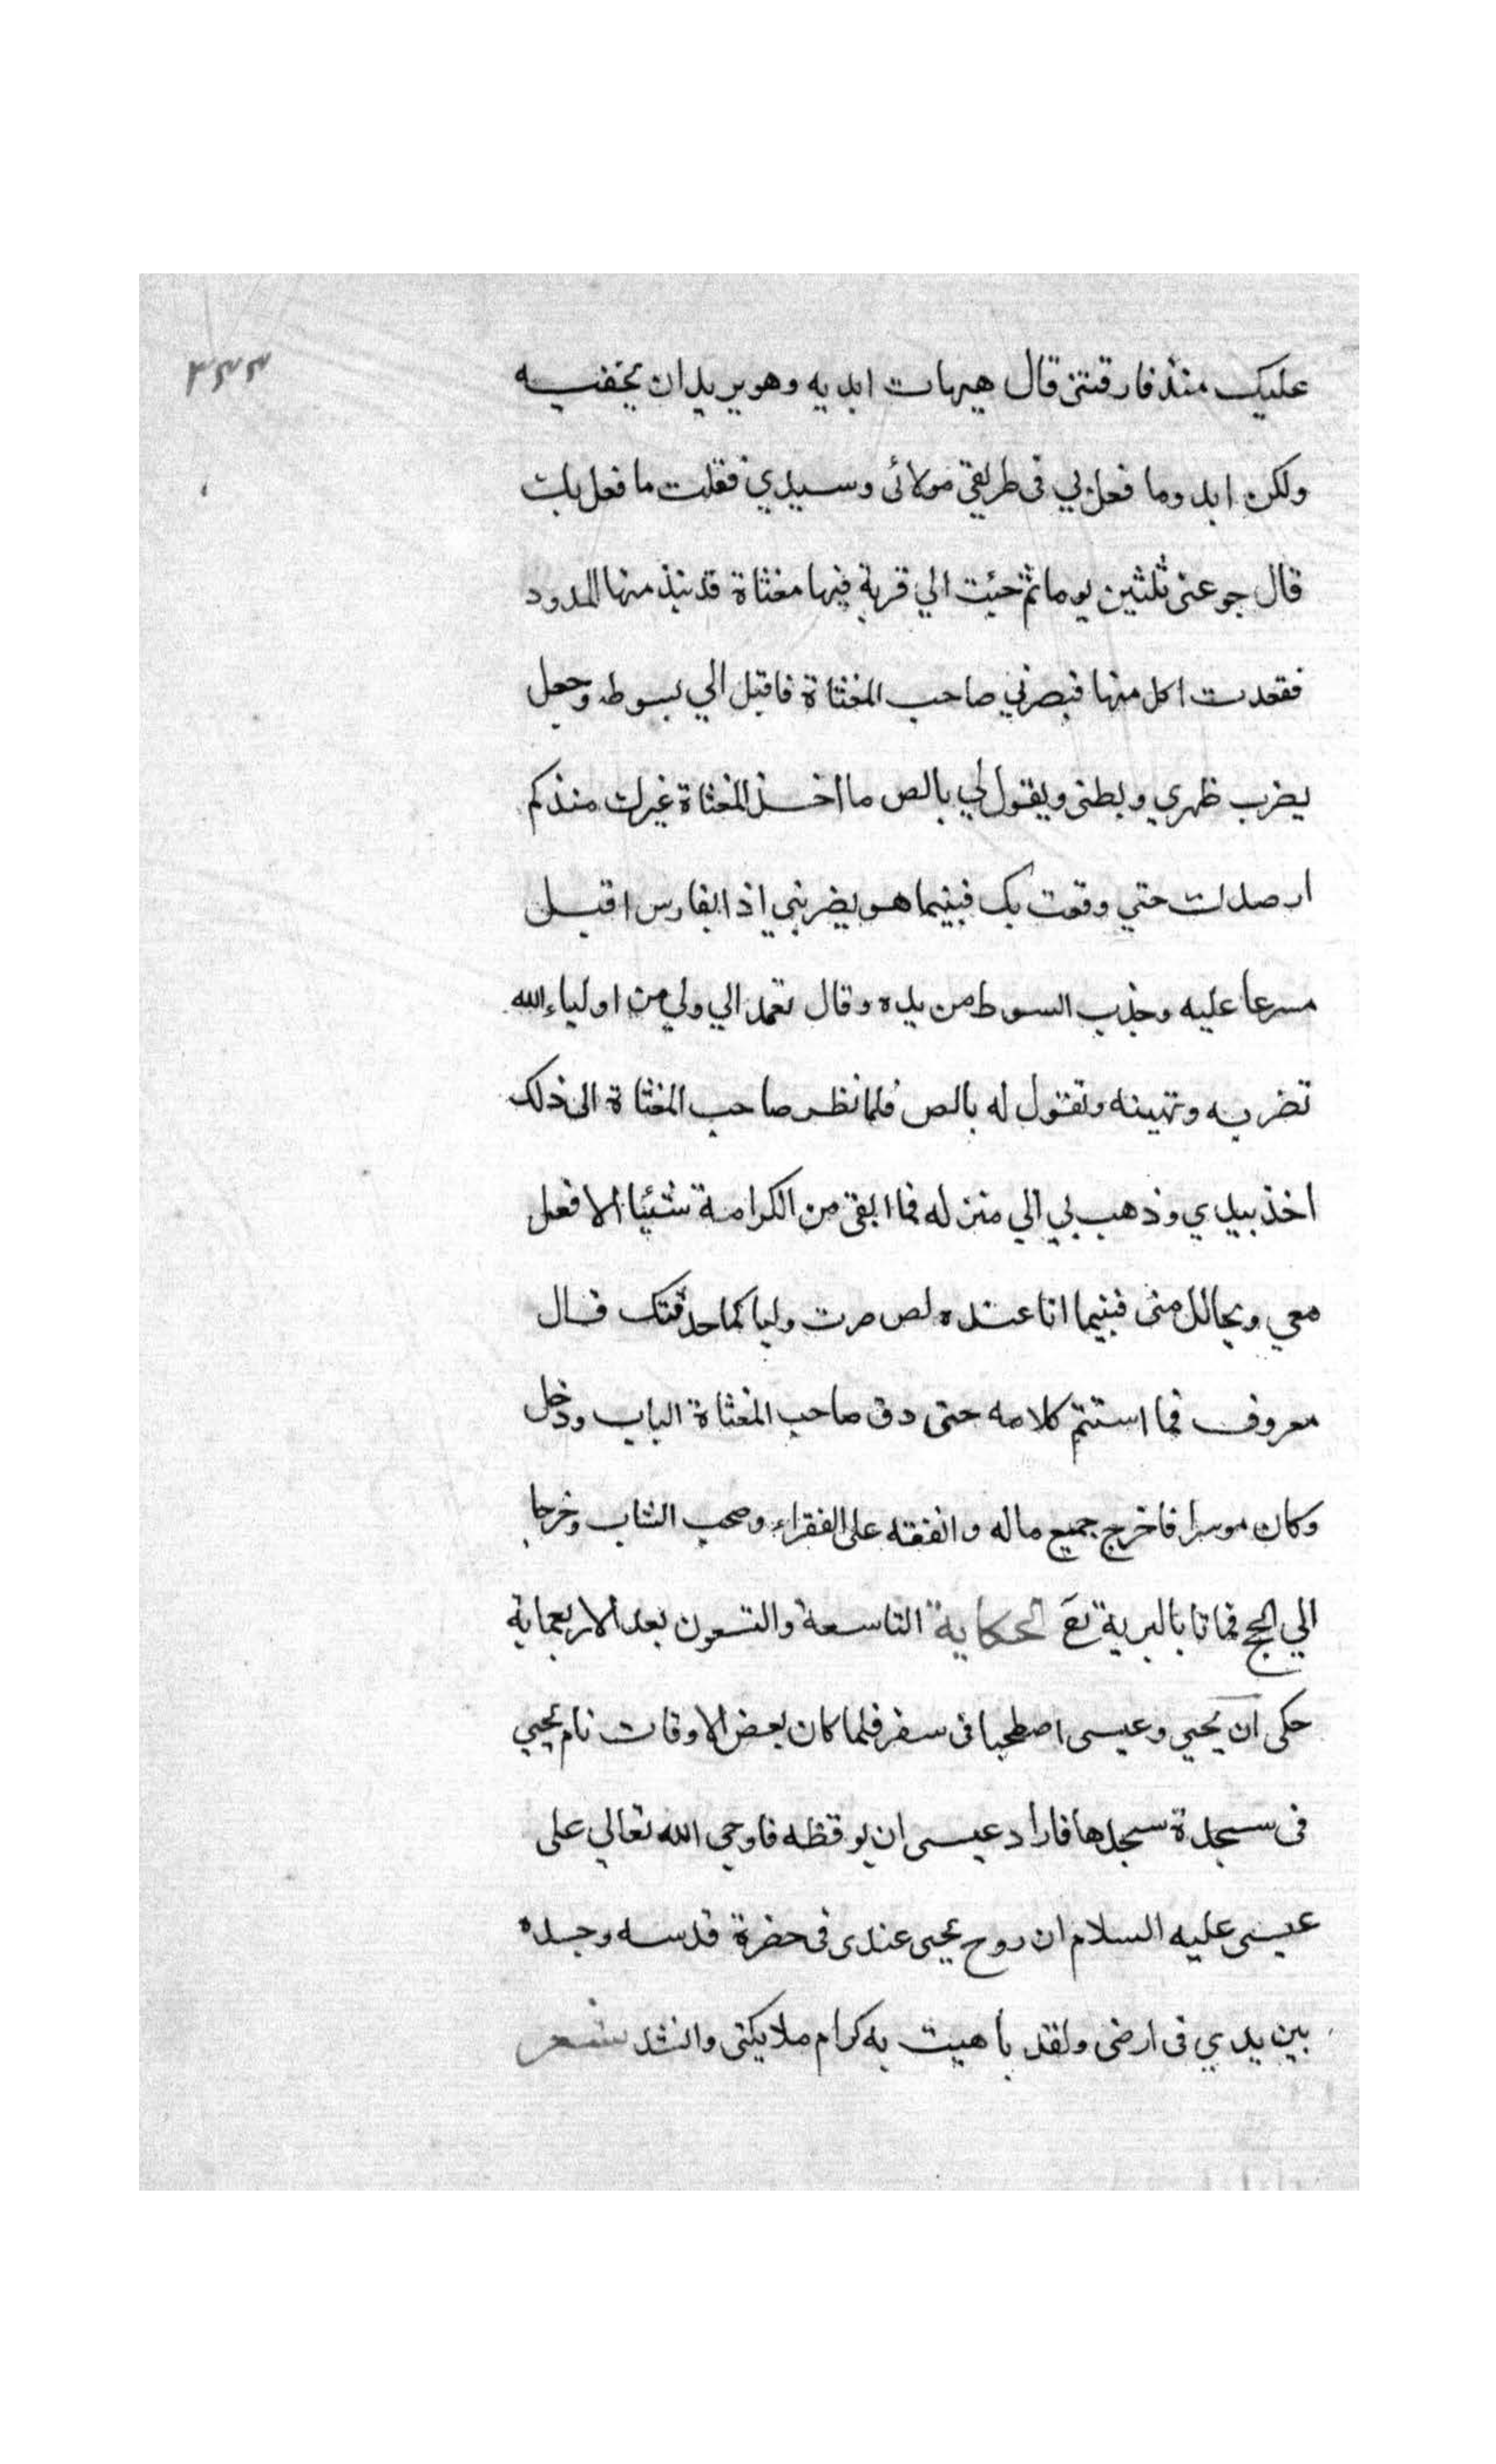 ٣٤٤
عليك منذ فارقتنى قال هيهات ابديه وهو يريد ان يخفيه
ولكن ابدو ما فعل بي فى طريقى مولائى وسيدي فقلت ما فعل بك
قال جوعنى ثلثين يوما ثم جئت الي قرية فيها مغثاة قد نبذ منها المدود
فقعدت اكل منها فبصرني صاحب المغثاة فاقبل الي بسوطه وجعل
يضرب ظهري وبطنى ويقول لي يالص ما اخذ المغثاة غيرك منذ كم
ارصدك حتي وقعت بك فبينما هو يضربني اذا بفارس اقبل
مسرعا عليه وجذب السوط من يده وقال تعمد الي ولي من اولياء الله
تضربه وتهينه وتقول له يالص فلما نظر صاحب المغثاة الى ذلك
اخذ بيدي وذهب بي الي منزله فما ابقى من الكرامة شئيا الا فعل
معي ويحالل منى فبينما انا عنده لص صرت وليا كما حدثتك قال
معروف فما استتم كلامه حتى دق صاحب المغثاة الباب ودخل
وكان موسرا فاخرج جميع ماله وانفقه على الفقراء وصحب الشاب وخرجا
الي الحج فماتا بالبرية تع الحكاية التاسعة والتسعون بعد الاربعماية
حكى ان يحيي وعيسى اصطحبا فى سفر فلما كان بعض الاوقات نام يحيي
فى سجدة سجدها فاراد عيسى ان يوقظه فاوحي الله تعالي على
عيسى عليه السلام ان روح يحيى عندى فى حضرة قدسه وجسده
بين يدي فى ارضى ولقد باهيت به كرام ملايكتى وانشد شعر